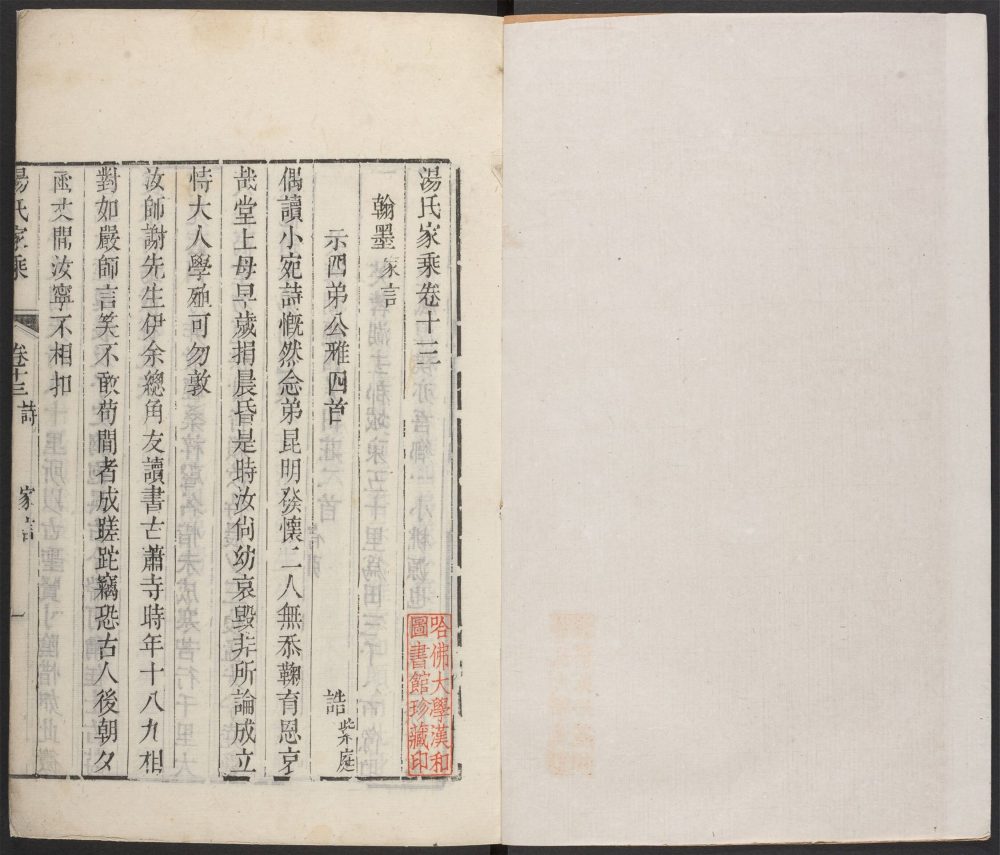 湯氏家乘卷十三
翰墨 家言
示四弟公雅四首 誥 紫庭
偶讀小宛詩慨然念弟昆明發懷二人無忝鞠育恩哀
哉堂上母早歲捐晨昏是時汝尚幼哀毀非所論成立
恃大人學殖可勿敦
汝師謝先生伊余總角友讀書古蕭寺時年十八九相
對如嚴師言笑不敢苟間者成蹉跎竊恐古人後朝夕
函丈間汝寧不相扣
湯氏家乘 卷十三 詩 家言 一
哈佛大學漢和
圖書館珍藏印